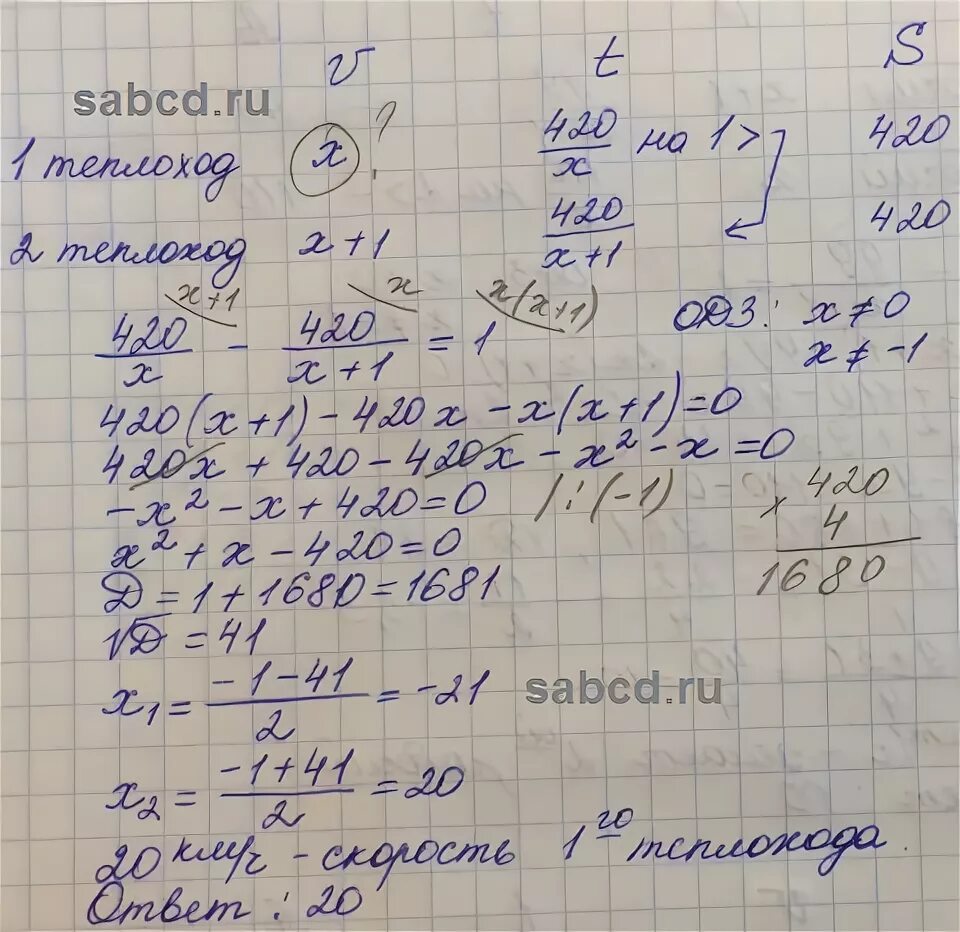 v t S
sabcd.ru
1 теплоход x ? 420/x на 1 > 420
2 теплоход x+1 420/(x+1) 420
x+1 x x(x+1)
420/x - 420/(x+1) = 1 ОДЗ: x ≠ 0
x ≠ -1
420(x+1) - 420x - x(x+1) = 0
420x + 420 - 420x - x² - x = 0
-x² - x + 420 = 0 |:(-1)
x² + x - 420 = 0
× 420
4
1680
D = 1 + 1680 = 1681
√D = 41
x₁ = (-1-41)/2 = -21
sabcd.ru
x₂ = (-1+41)/2 = 20
20 км/ч - скорость 1го теплохода.
Ответ: 20